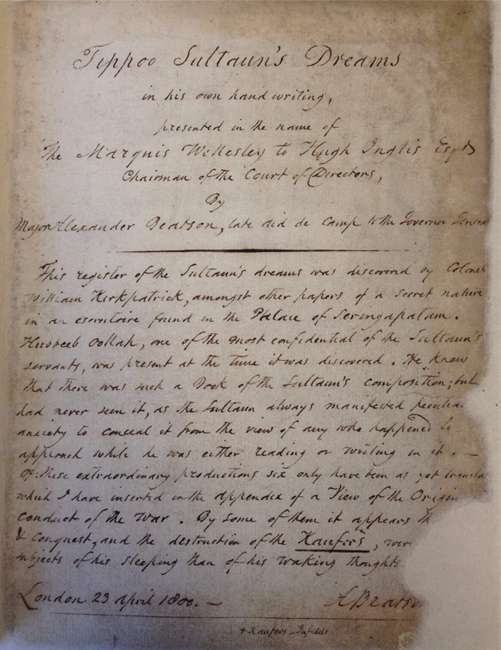 Tippoo Sultaun's Dreams
in his own handwriting,
presented in the name of
The Marquis Wellesley to Hugh Inglis Esqr
Chairman of the Court of Directors,
By
Major Alexander Beatson, late aid de camp to the Governor General
This register of the Sultaun's dreams was discovered by Colonel
William Kirkpatrick, amongst other papers of a secret nature
in an escrutoire found in the Palace of Seringapatam.
Hubbeeb Oollah, one of the most confidential of the Sultaun's
servants, was present at the time it was discovered. He knew
that there was such a Book of the Sultaun's composition; but
had never seen it, as the Sultaun always manifested peculiar
anxiety to conceal it from the view of any who happened to
approach while he was either reading or writing in it. —
Of these extraordinary productions six only have been as yet
which I have inserted in the appendix of a View of the Origin
conduct of the War. By some of them it appears
& conquest, and the destruction of the Kaufers, were
subjects of his sleeping than of his waking thoughts.
London 23 April 1800. —
A Beatson
+ Kaufers - Infidels